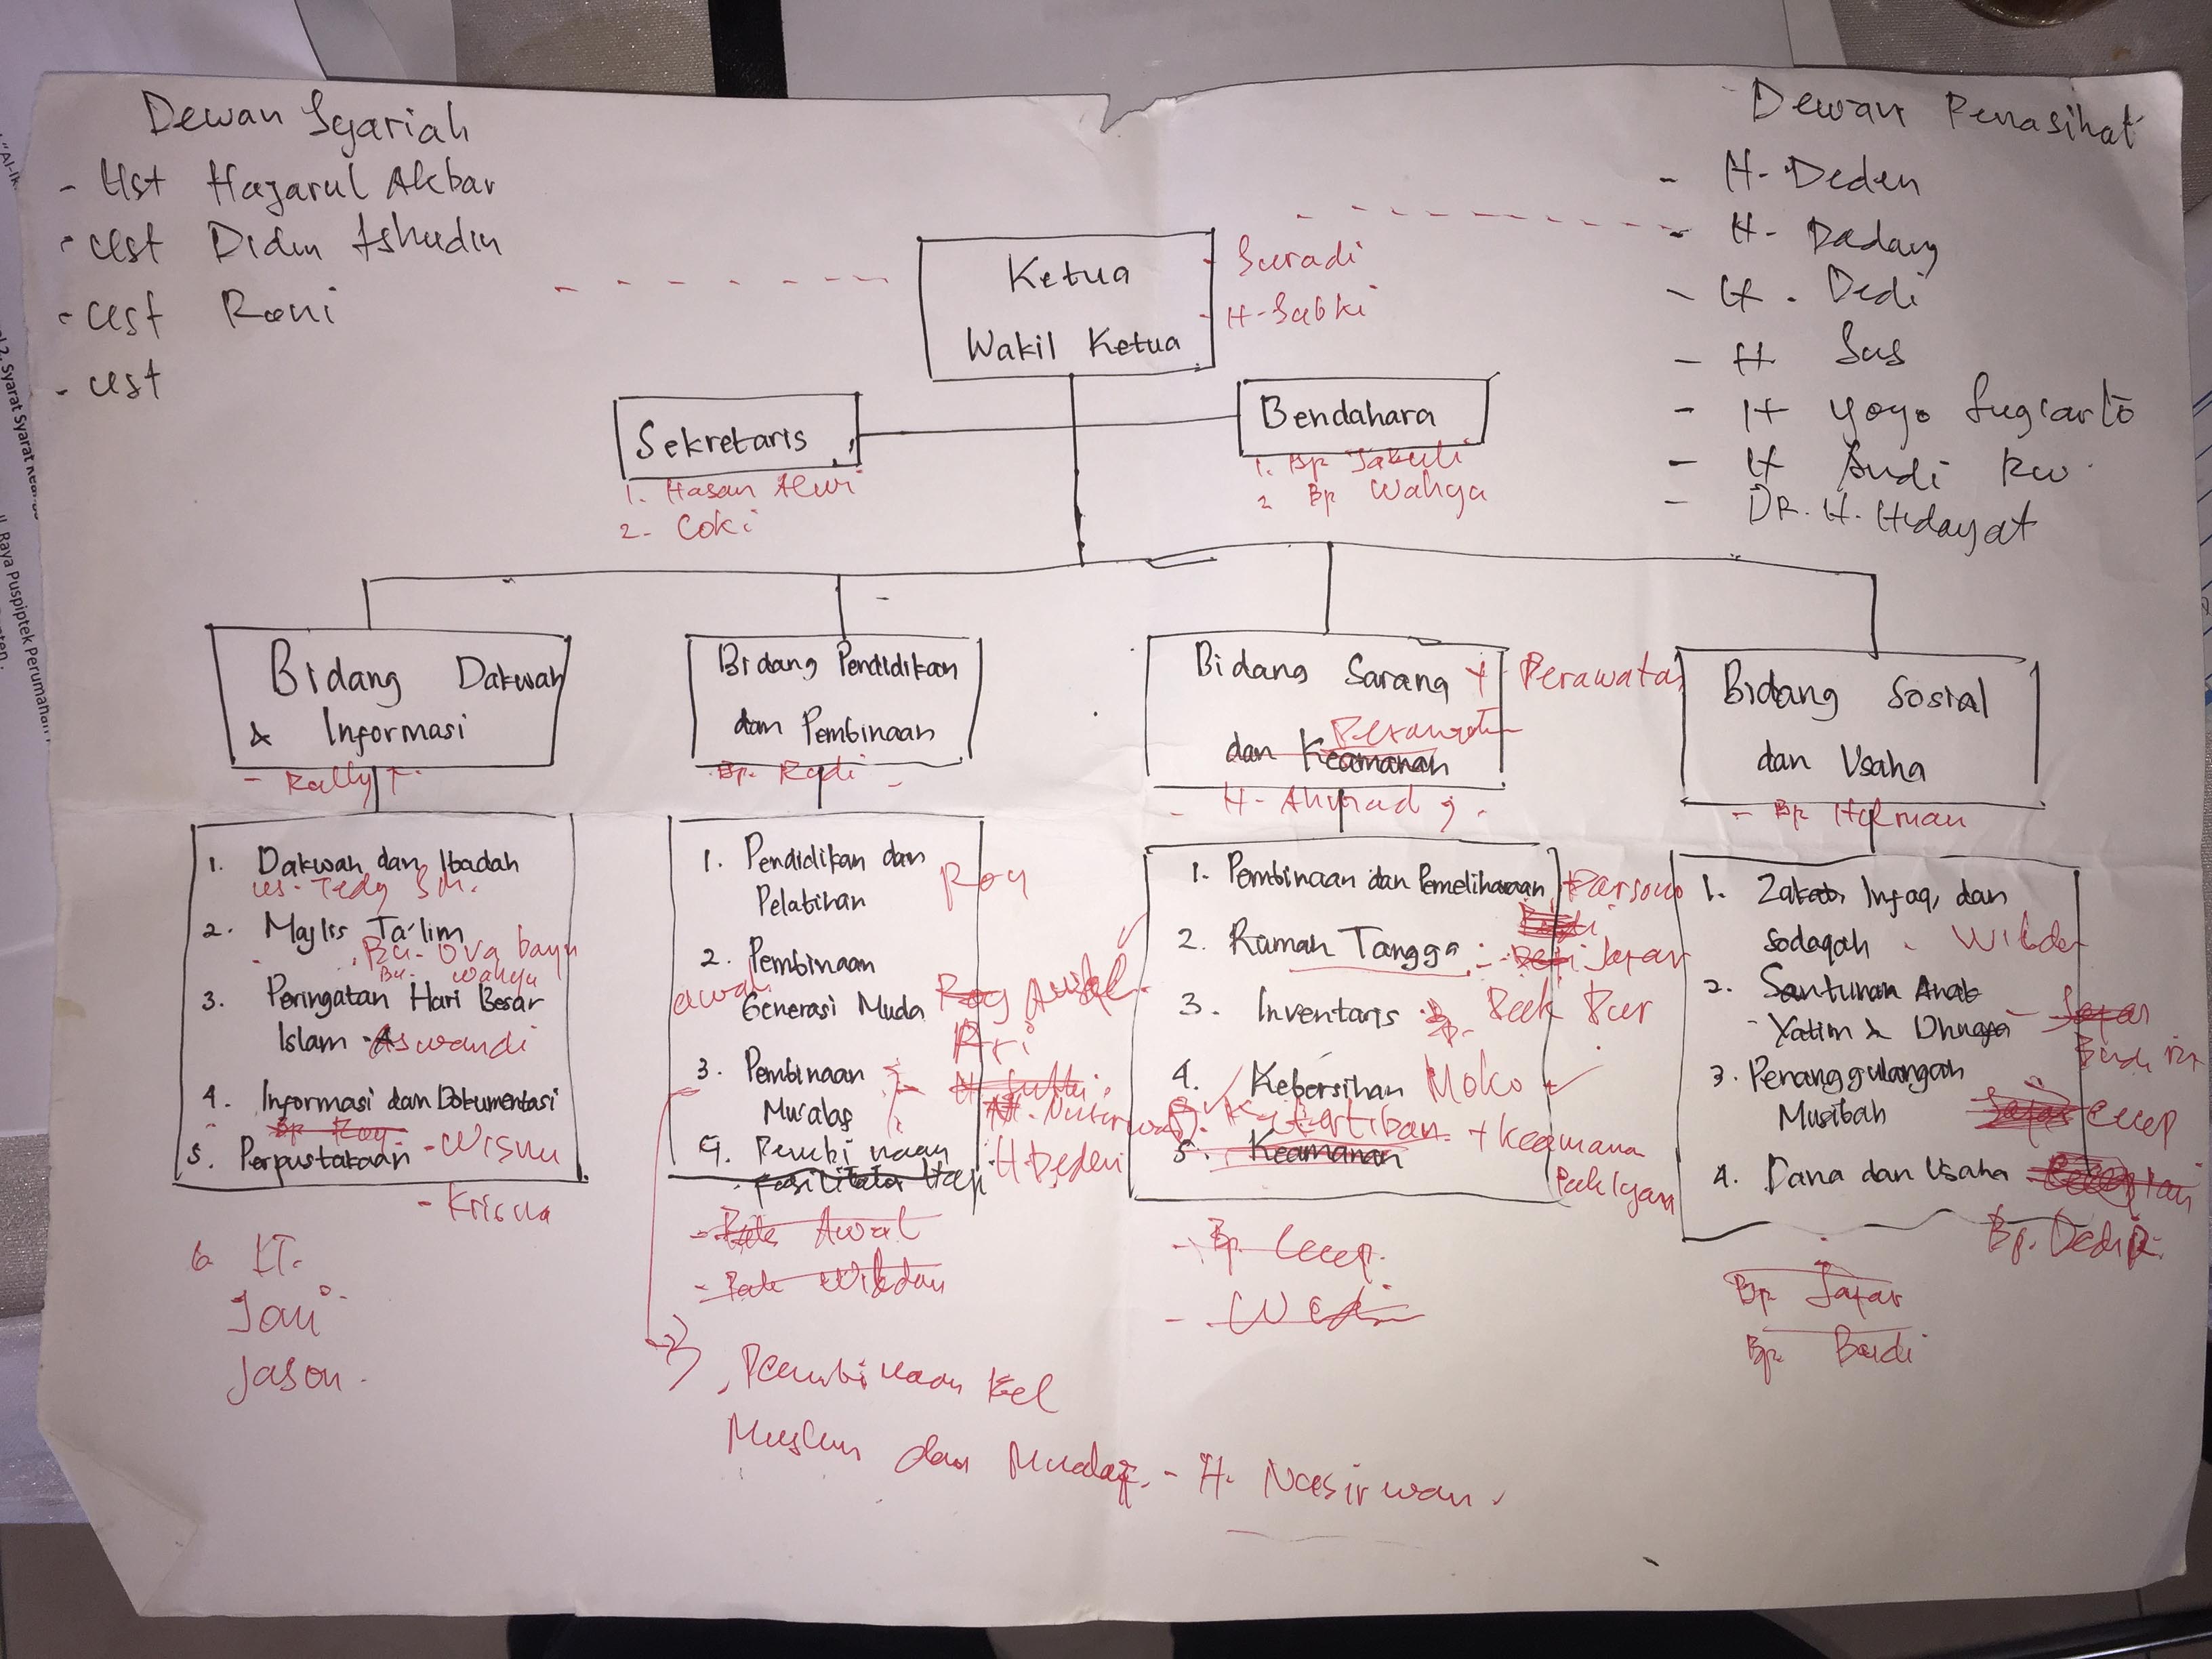 Dewan Syariah
- Ust Hajarul Akbar
- Ust Didin
- Ust Roni
- Ust
Dewan Penasihat
- H. Deden
- H. Dadang
- H. Dedi
- H Sus
- H Yoyo Sugiarto
- H Budi RW
- DR. H. Hidayat
Ketua
Wakil Ketua
- Suradi
- H. Sabki
Sekretaris
1. Hasan Alwi
2. Coki
Bendahara
1. Bp
2 Bp Wahyu
Bidang Dakwah
& Informasi
- Rally
Bidang Pendidikan
dan Pembinaan
Bp. Rudi -
Bidang Sarana + Perawatan
dan Keamanan
- H. Ahmad
Bidang Sosial
dan Usaha
- Bp Herman
1. Dakwah dan Ibadah
Tedy
2. Majlis Ta'lim
Bu. Ova bayu
Bu. Wahyu
3. Peringatan Hari Besar
Islam - Aswandi
4. Informasi dan Dokumentasi
Bp Roy
5. Perpustakaan - Wisnu
- Krisna
6 IT.
Joni
Jason.
1. Pendidikan dan
Pelatihan Roy
2. Pembinaan
Generasi Muda Roy Awal
Ari
3. Pembinaan
Mualaf
4. Pembinaan
Fasilitator Haji H. Deden
- Pak Awal
- Pak Wildan
3, Pembinaan Kel
Muslim dan Mualaf. - H. Nasirwan.
1. Pembinaan dan Pemeliharaan Parsono
2. Rumah Tangga Jafar
3. Inventaris Bp.
4. Kebersihan Moko
Ketertiban + Keamana
5. Keamanan
Pak Iyan
- Bp. Cecep.
1. Zakat, Infaq, dan
Sodaqoh - Wildan
2. Santunan Anak
Yatim & Dhuafa - Jafar
Budi
3. Penanggulangan
Musibah Jafar Cecep
4. Dana dan Usaha
Bp. Dedi
Bp Jafar
Bp. Budi